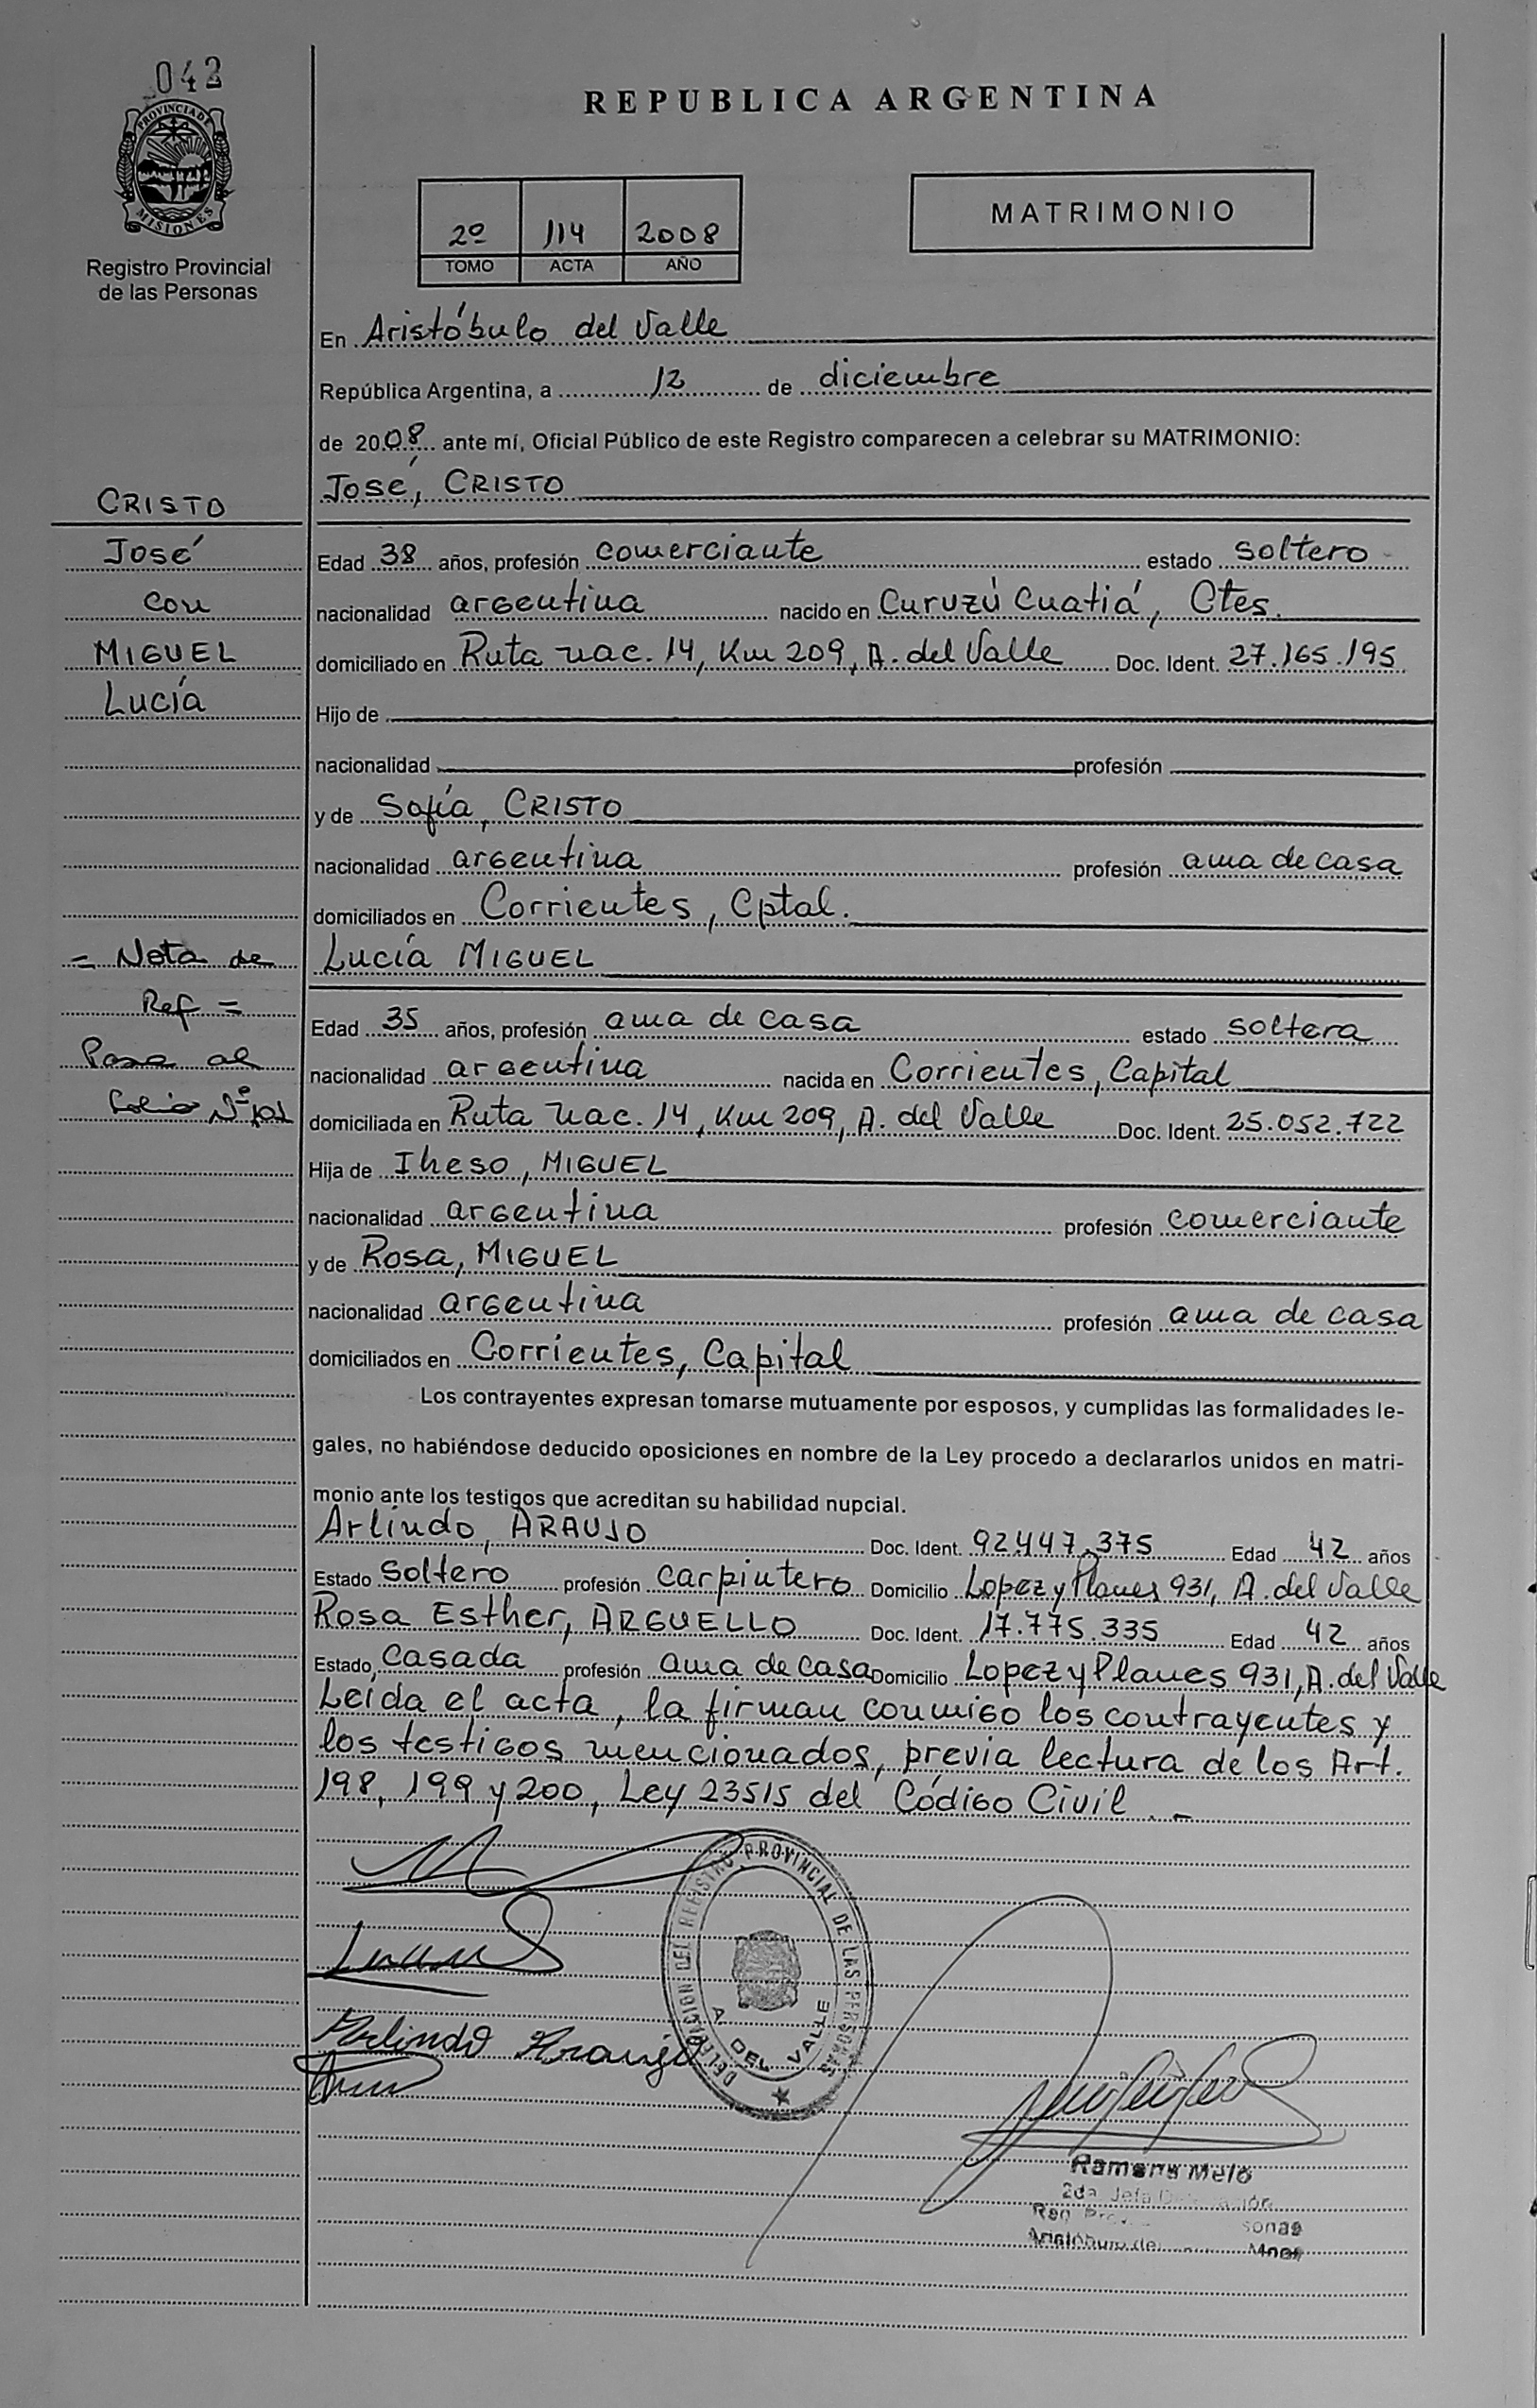 042
PROVINCIA DE
MISIONES
Registro Provincial
de las Personas
REPUBLICA ARGENTINA
2º 114 2008
TOMO ACTA AÑO
MATRIMONIO
En Aristóbulo del Valle
República Argentina, a 12 de diciembre
de 2008 ante mí, Oficial Público de este Registro comparecen a celebrar su MATRIMONIO:
José, CRISTO
CRISTO
José
con
MIGUEL
Lucía
Edad 38 años, profesión comerciante estado soltero
nacionalidad argentina nacido en Curuzú Cuatiá, Ctes.
domiciliado en Ruta nac. 14, Km 209, A. del Valle Doc. Ident. 27.165.195
Hijo de
nacionalidad profesión
y de Sofía, CRISTO
nacionalidad argentina profesión ama de casa
domiciliados en Corrientes, Cptal.
= Nota de
Ref =
Pasa al
Folio Nº 101
Lucía MIGUEL
Edad 35 años, profesión ama de casa estado soltera
nacionalidad argentina nacida en Corrientes, Capital
domiciliada en Ruta nac. 14, Km 209, A. del Valle Doc. Ident. 25.052.722
Hija de Iheso, MIGUEL
nacionalidad argentina profesión comerciante
y de Rosa, MIGUEL
nacionalidad argentina profesión ama de casa
domiciliados en Corrientes, Capital
Los contrayentes expresan tomarse mutuamente por esposos, y cumplidas las formalidades le-
gales, no habiéndose deducido oposiciones en nombre de la Ley procedo a declararlos unidos en matri-
monio ante los testigos que acreditan su habilidad nupcial.
Arlindo, ARAUJO Doc. Ident. 92.447.375 Edad 42 años
Estado soltero profesión carpintero Domicilio Lopez y Planes 931, A. del Valle
Rosa Esther, ARGUELLO Doc. Ident. 17.775.335 Edad 42 años
Estado casada profesión ama de casa Domicilio Lopez y Planes 931, A. del Valle
Leída el acta, la firman conmigo los contrayentes y
los testigos mencionados, previa lectura de los Art.
198, 199 y 200, Ley 23515 del Código Civil.-
DELEGACION DEL REGISTRO PROVINCIAL DE LAS PERSONAS
A. DEL VALLE
Arlindo Araujo
Ramona Melo
2da. Jefa